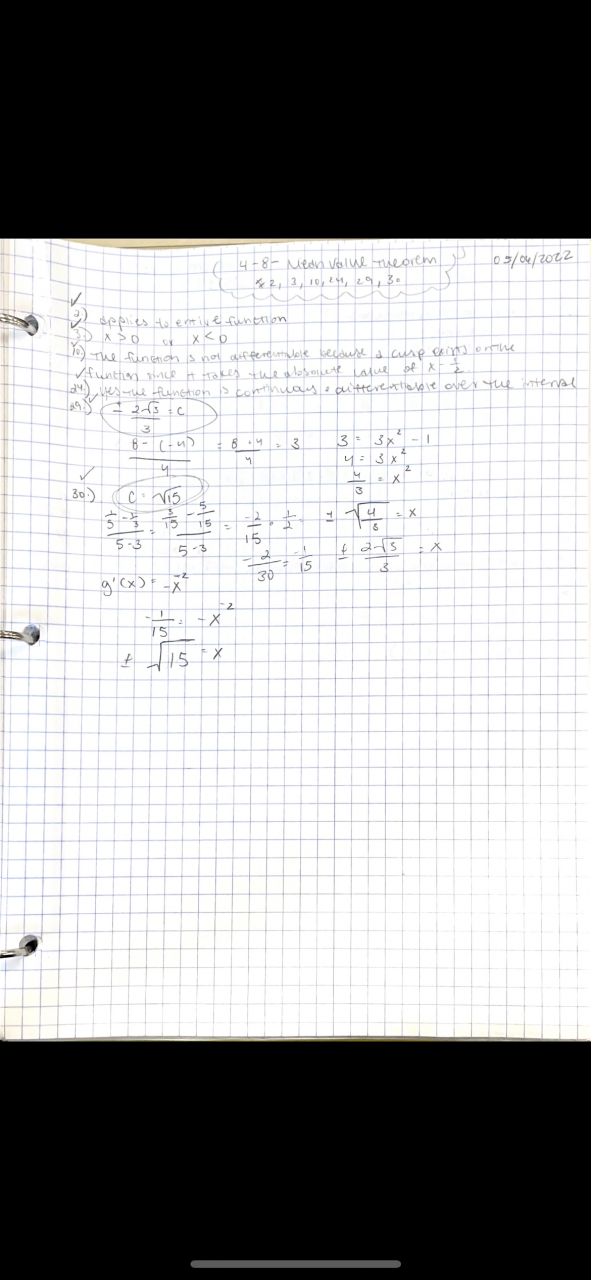 4-8- Mean Value Theorem
05/04/2022
*2, 3, 10, 24, 29, 30
2) applies to entire function
3) x > 0 or x < 0
10) The function is not differentiable because a cusp exists on the
function since it takes the absolute value of x - 1/2
24) yes the function is continuous + differentiable over the interval
29.) ± 2√3/3 = c
8 - (-4)/4 = 8+4/4 = 3
3 = 3x² - 1
4 = 3x²
4/3 = x²
± √4/3 = x
± 2√3/3 = x
30.) c = √15
1/5 - 1/3 / 5-3 = 3/15 - 5/15 / 5-3 = -2/15 · 1/2
-2/30 = -1/15
g'(x) = -x⁻²
-1/15 = -x⁻²
± √15 = x